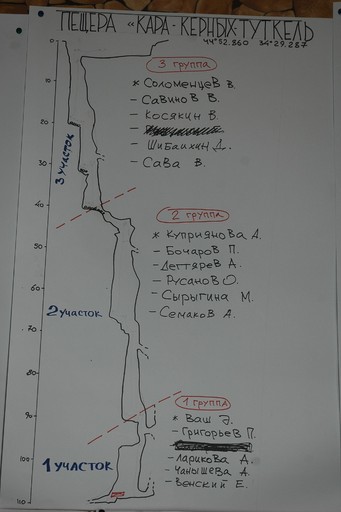 ПЕЩЕРА "КАРА-КЕРНЫХ-ТУТКЕЛЬ
44°52.860 34°29.287
0
10
20
30
40
50
60
70
80
90
100
110
3 участок
2 участок
1 участок
3 группа
* Соломенцев В.
- Савинов В.
- Косякин В.
- Шибаихин Д.
- Сава В.
2 группа
* Куприянова А.
- Бочаров П.
- Дегтярев А.
- Русанов О.
- Сырыгина М.
- Семаков А.
1 группа
* Ваш Э.
- Григорьев П.
- Ларикова А.
- Чанышева А.
- Венский Е.